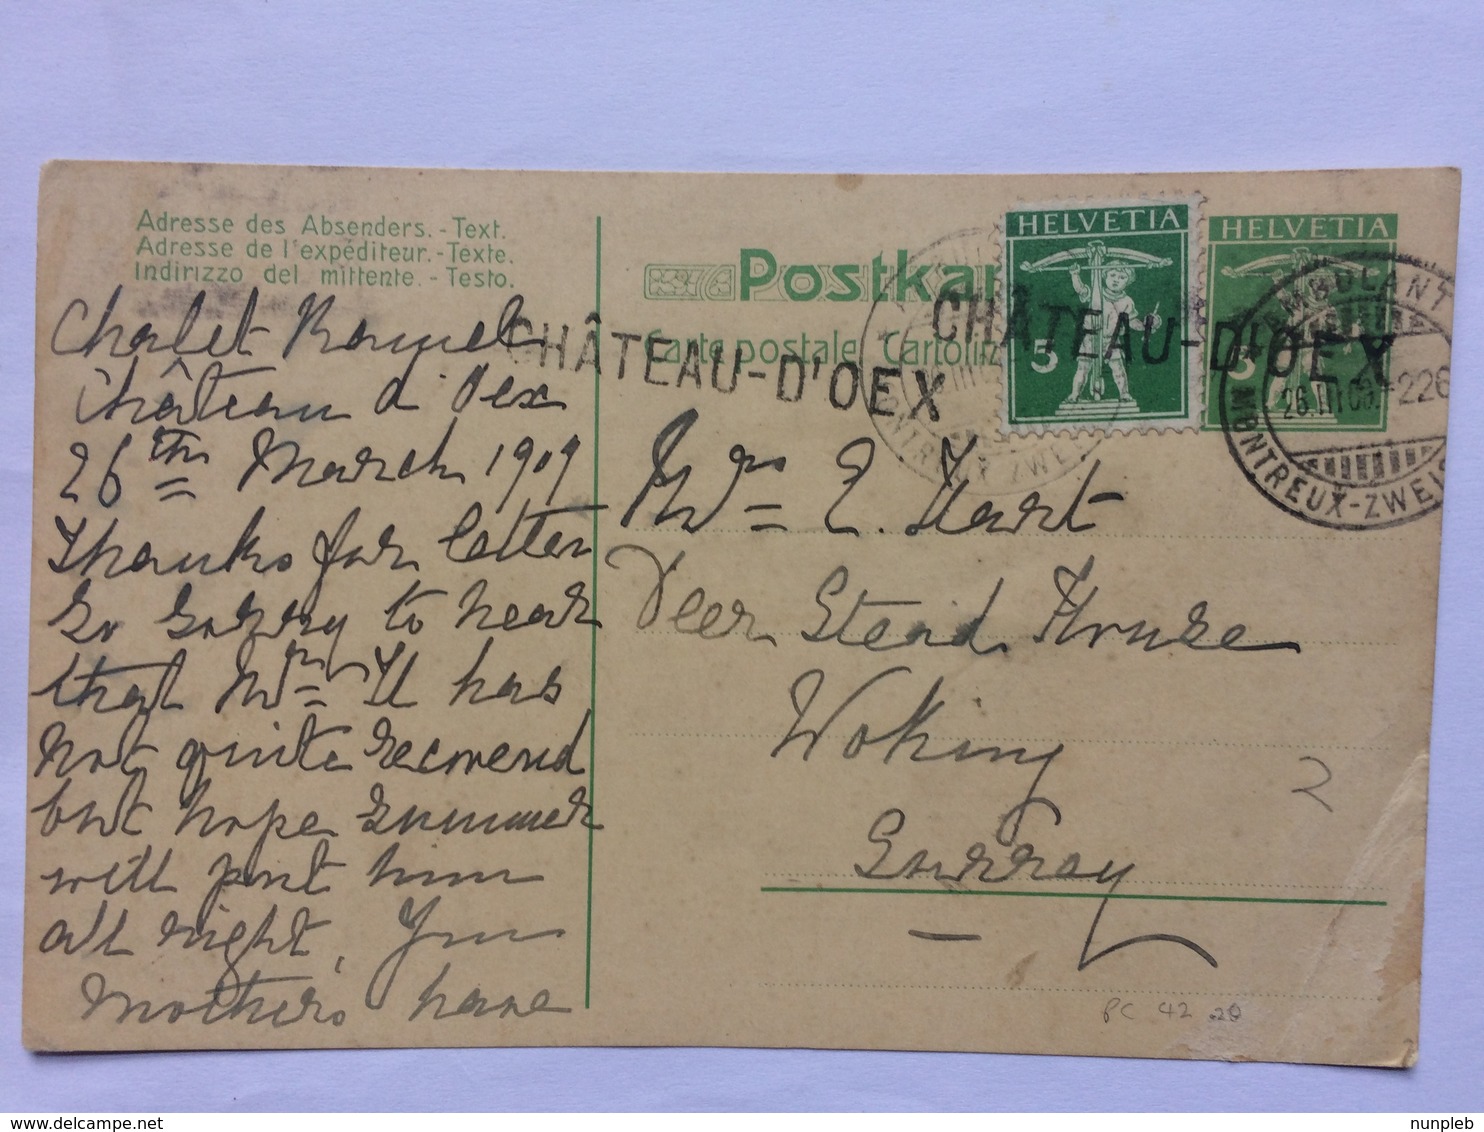 Adresse des Absenders. - Text.
Adresse de l'expéditeur. - Texte.
Indirizzo del mittente. - Testo.
Chalet
Château d'Oex
26th March 1909
Thanks for letter
So Sorry to hear
that Mr H has
not quite recovered
but hope Summer
will put him
all right, You
Mothers have
Postkar
Carte postale Cartolin
CHÂTEAU-D'OEX
CHÂTEAU-D'OEX
HELVETIA
5
HELVETIA
5
AMBULANT
26.III.09.-226
MONTREUX-ZWEIS
NTREUX ZWE
Mrs E. Hart
Deer Stead House
Woking
Surrey
2
PC 42 .20
nunpleb